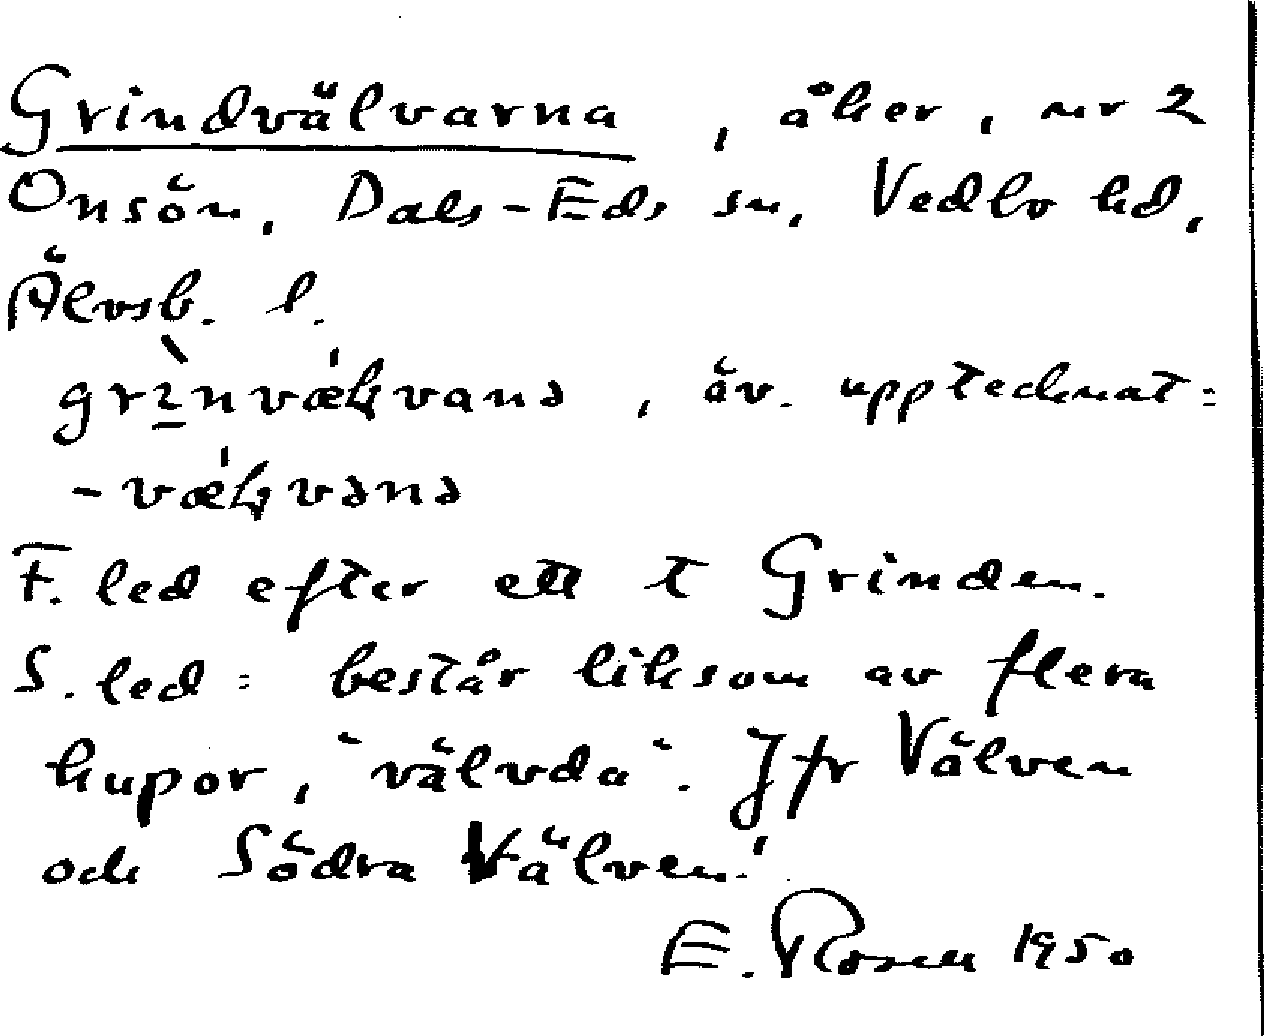 Grindvälvarna, åker, nr 2
Onsön, Dals-Eds sn, Vedbo hd,
Älvsb. l.
F. led efter ett t Grinden.
S. led: består liksom av flera
kupor, "välvda". Jfr Välven
och Södra Välven!
E. Rosell 1950